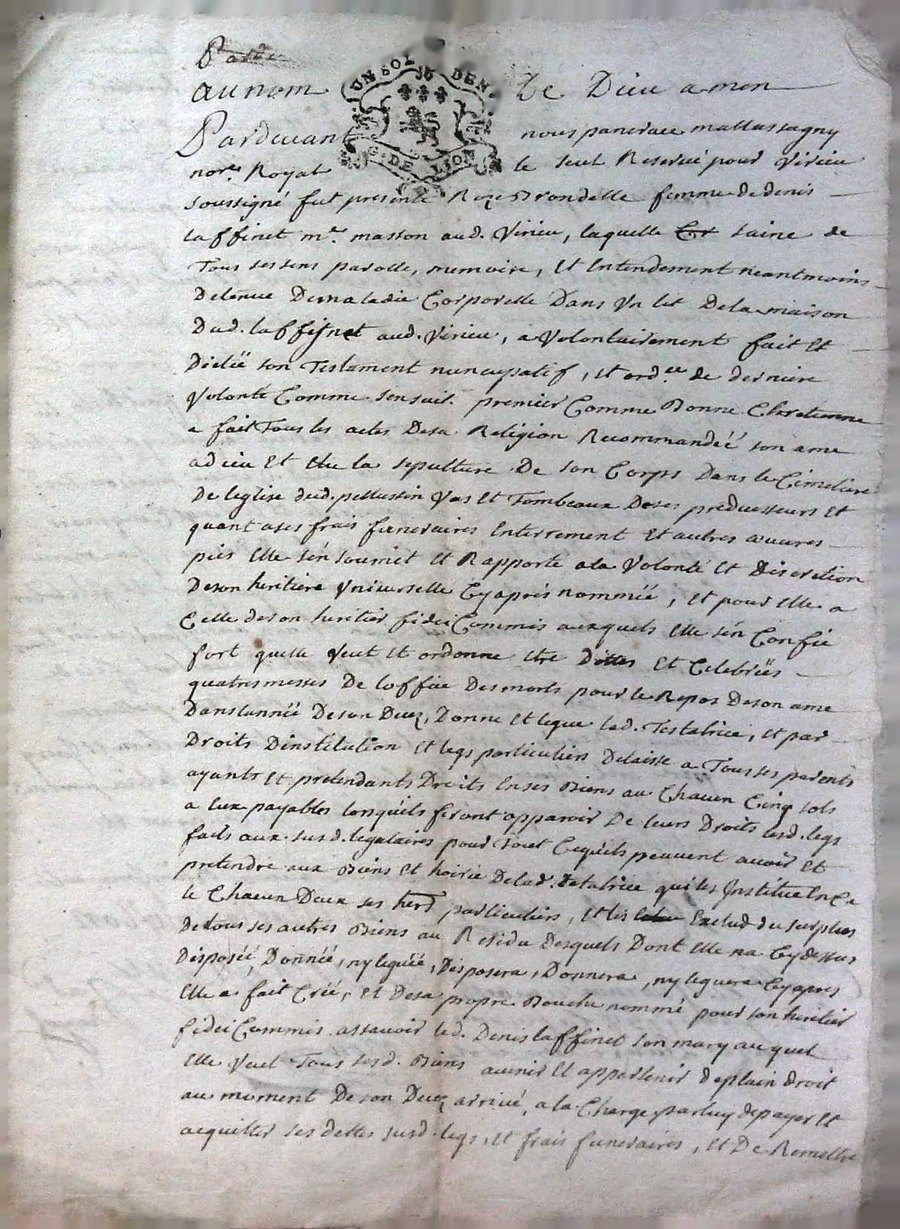 Pardt
UN SOL DEN.
G. DE LION
au nom De Dieu amen
Pardevant nous pancrace mallassagny
nore. Royal le seul Reservé pour Virieu
soussigné fut presente Roze Brondelle femme de denis
laffinet me. masson aud. Virieu, laquelle saine de
Tous ses sens parolle, memoire, Et Entendement neantmoins
Detenue De maladie Corporelle Dans Un lit De la maison
Dud. laffinet aud. Virieu, a Volontairement fait Et
Dicté son Testament nuncupatif, et ord.ce de derniere
Volonté Comme sensuit. premier Comme Bonne Chretienne
a fait Tous les actes Desa Religion Recommandéé son ame
adieu Et Elu la sepulture De son Corps Dans le Cimetiere
De leglise dud. pellussin Vas et Tombeaux De ses predecesseurs Et
quant a ses frais funeraires Enterrement Et autres œuvres
pies Elle s'en soumet Et Rapporte ala Volonté Et Discretion
De son heritiere Universelle Cy apres nommèe, Et pour Elle a
Celle de son heritier fidei Commis auxquels Elle s'en Confie
fort quelle Veut Et ordonne Etre Dittes Et Celebréés
quatre messes De loffice Des morts pour le Repos De son ame
Dans lannéé De son Decez, Donne Et legue lad. Testatrice, Et par
Droits Dinstitution Et legs particuliers Delaisse a Tous ses parents
ayants Et pretendants Droits En ses Biens au Chacun Cinq sols
a Eux payables lorsquils feront apparoir De leurs Droits lesd. legs
faits aux susd. legataires pour Tout Cequils peuvent avoir Et
pretendre aux Biens Et hoirie Delad. Testatrice qui les Institue En Ce
le Chacun Deux ses hers particuliers, Et les Exclud du surplus
de Tous ses autres Biens au Residu desquels Dont Elle na Cy dessus
Disposéé, Donnéé, ny leguéé, Disposera, Donnera, ny leguera Cy apres
Elle a fait Créé, Et Desa propre Bouche nommé pour son heritier
fidei Commis assavoir led. Denis laffinet son mary auquel
Elle Veut Tous sesd. Biens avenir Et appartenir de plain droit
au moment De son Decez arrivé, a la Charge par luy de payer Et
acquitter ses dettes susd. legs, Et frais funeraires, Et De Remettre